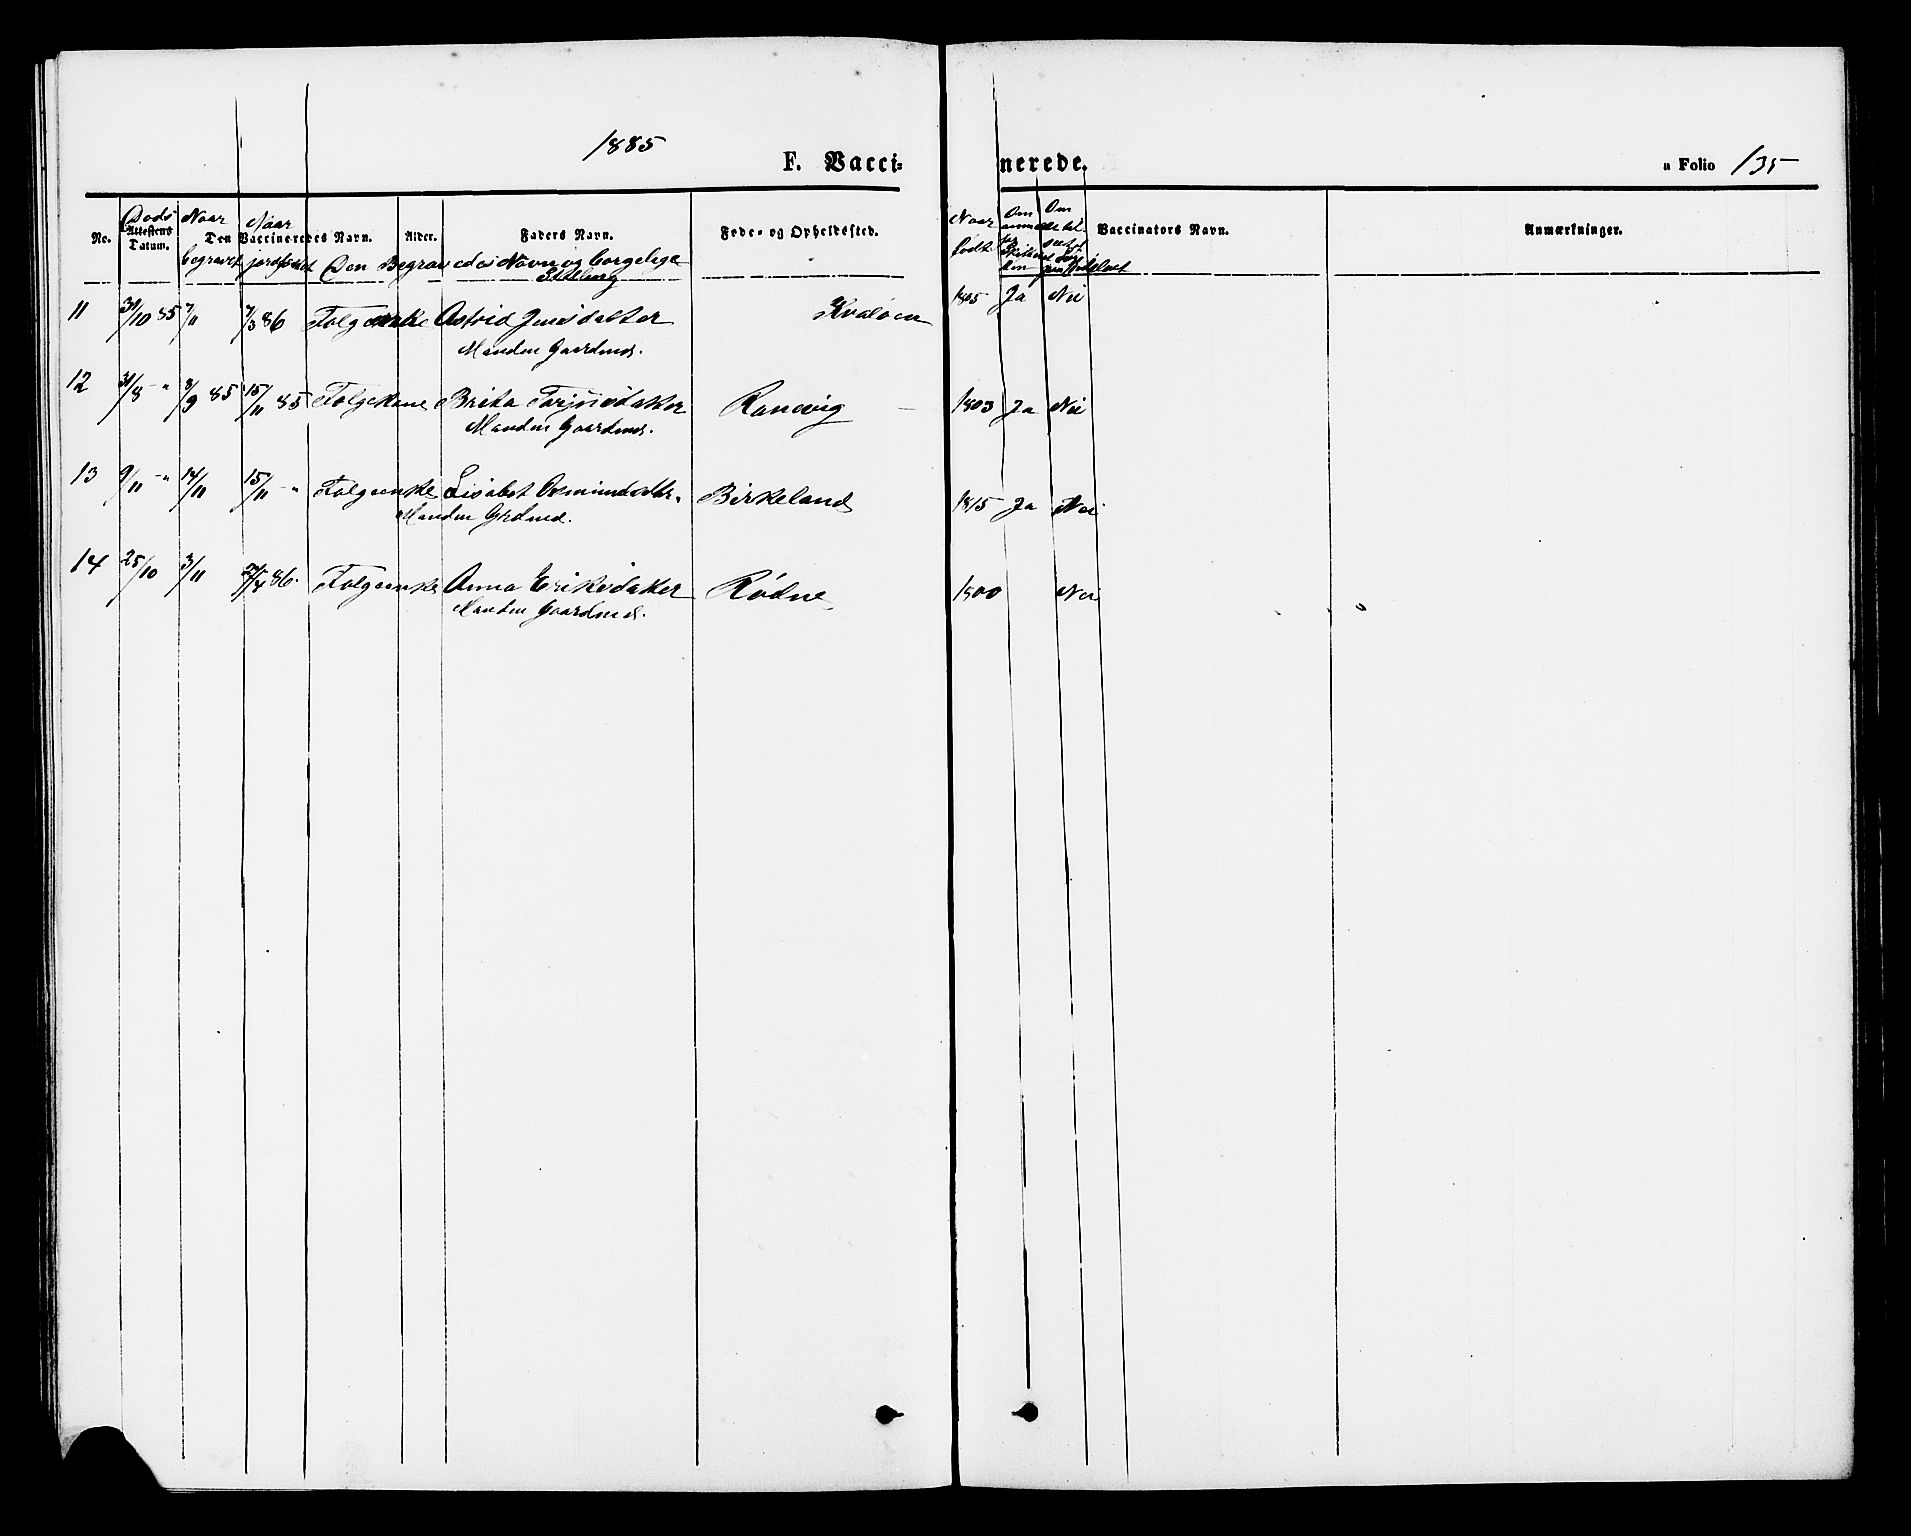 1885
F. Vacci=
nerede.
a Folio 135
No. Døds Attestens Datum. Naar begravet Naar jordfæstet Den Vaccineredes Navn. Alder. Faders Navn. Føde- og Opholdssted. Naar født Om Om Vaccinators Navn. Anmærkninger.
Den Begravedes Navn og borgelige Stilling
11 31/10 85 7/11 7/3 86 Folgeenke Astrid Jensdatter Kvaløen 1805 Ja Nei
Manden Gaardmd.
12 31/8 - " 8/9 85 15/11 85 Folgekone Brita Torjusdatter Ranvig - 1803 Ja Nei
Manden Gaardmd.
13 9/11 - " 14/11 15/11 - " Folgeenke Lisabet Osmundsdtr. Birkeland 1815 Ja Nei
Manden Grdmd.
14 25/10 3/11 /4 86. Folgeenke Anna Eriksdatter Rødne 1800 Nei
Manden Gaardmd.